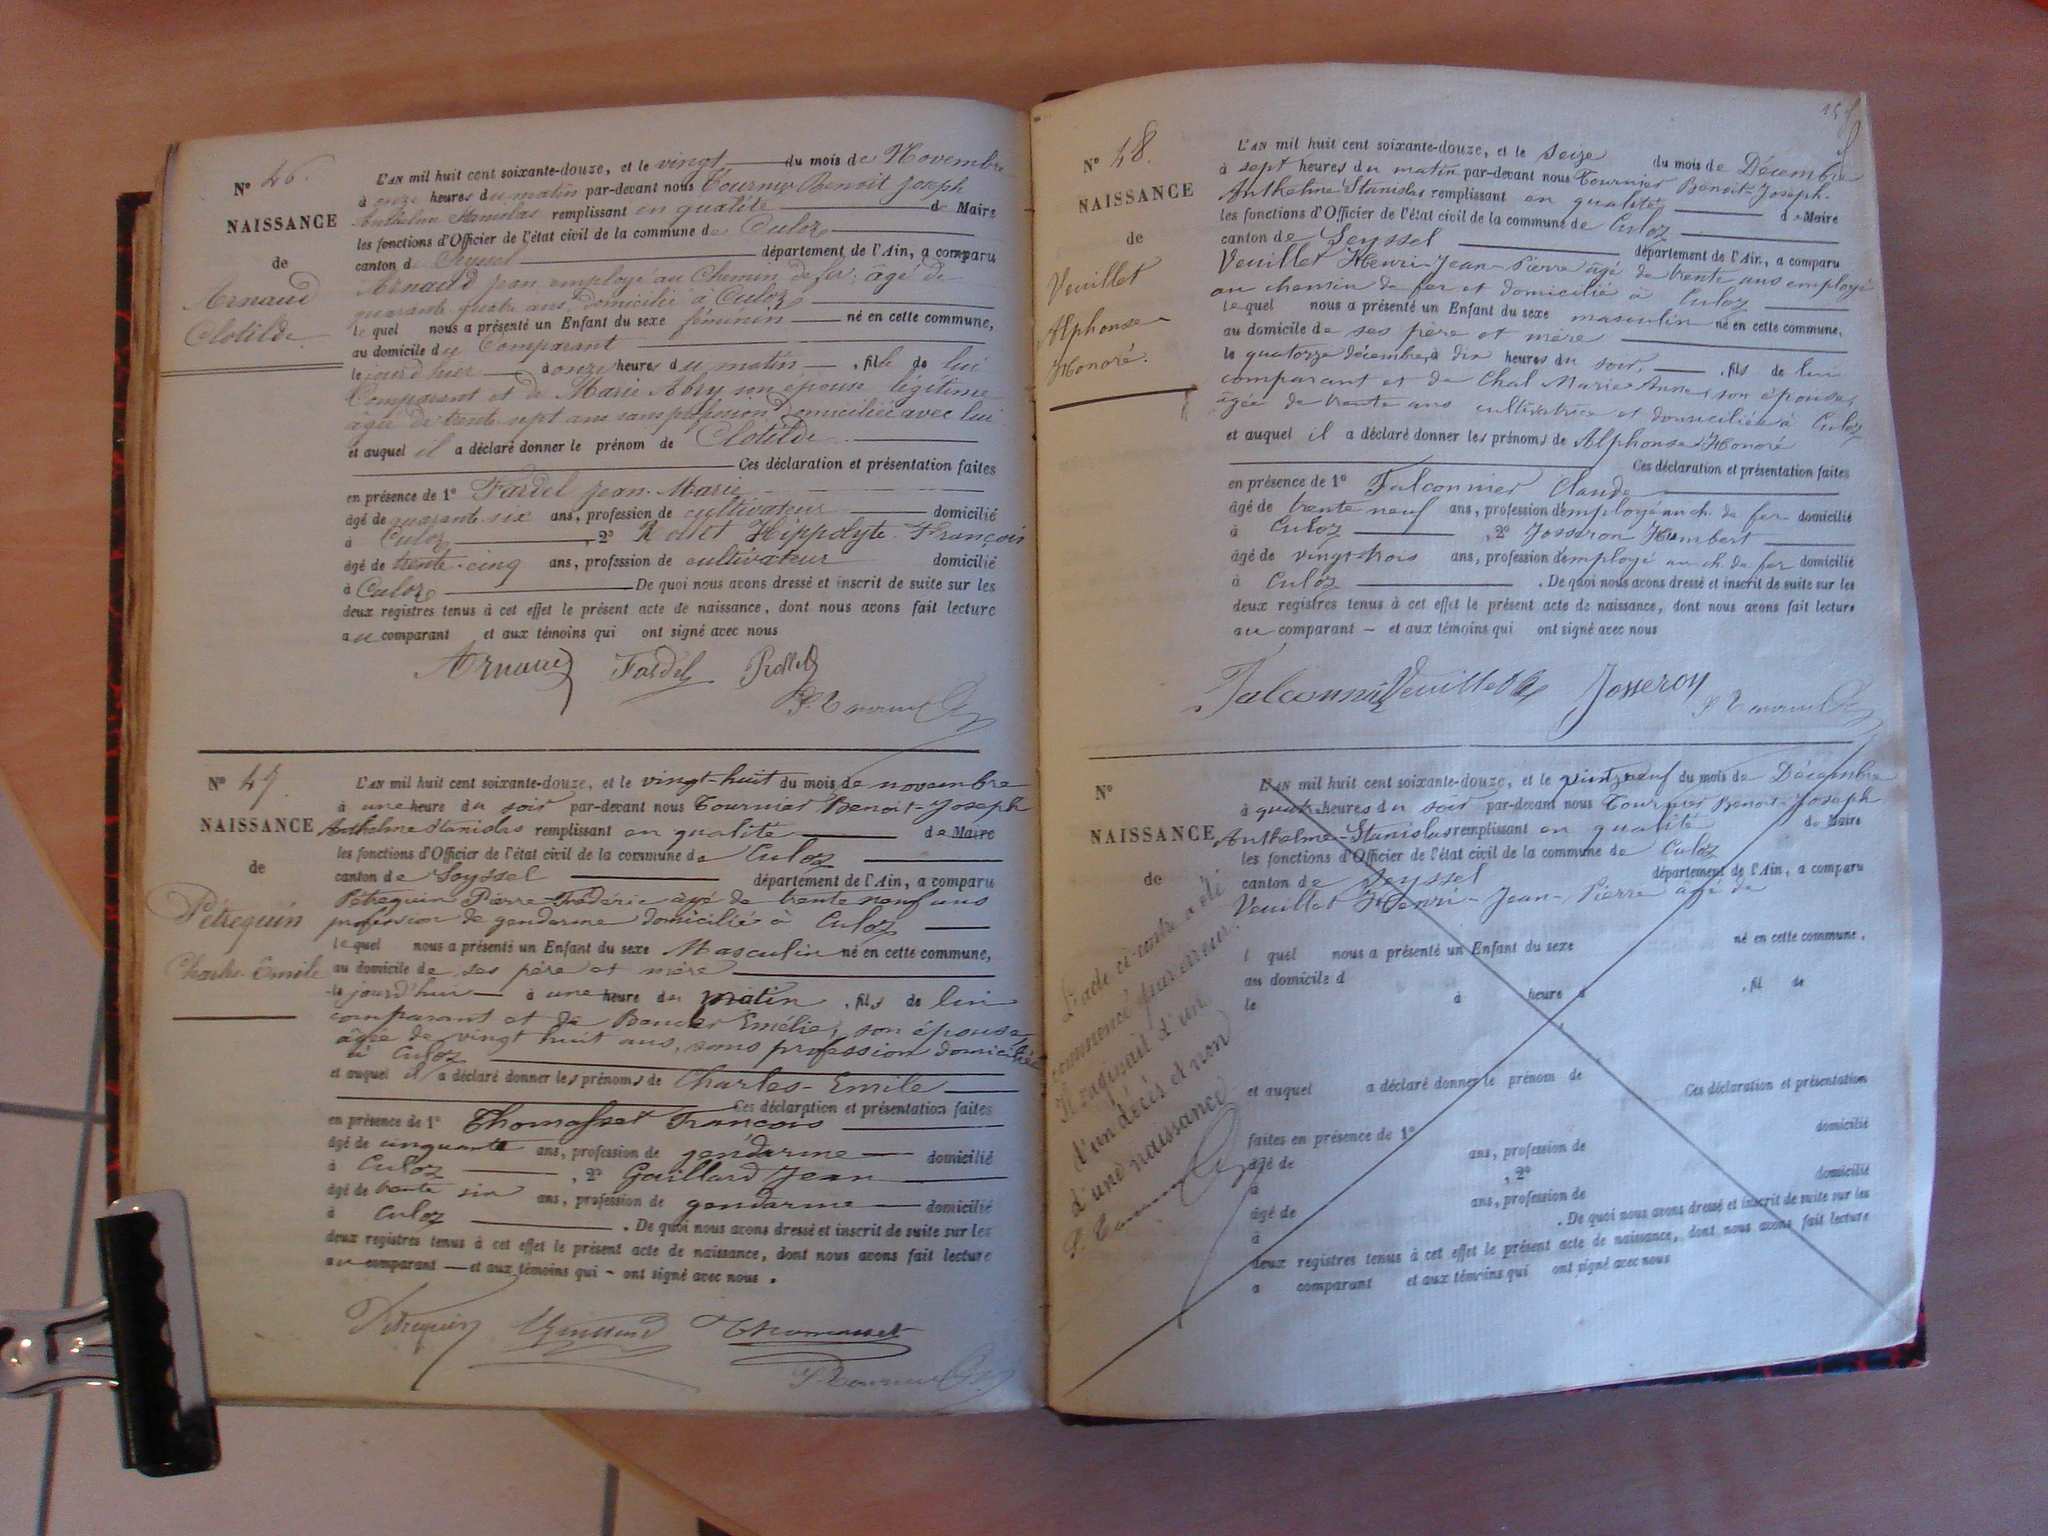 N° 46.
NAISSANCE
de
Arnaud
Clotilde
L'AN mil huit cent soixante-douze, et le vingt du mois de Novembre
à onze heures du matin par-devant nous Tournier Benoit Joseph
Anthelme Stanislas remplissant en qualité de Maire
les fonctions d'Officier de l'état civil de la commune de Culoz
canton de Seyssel département de l'Ain, a comparu
Arnaud jean employé au Chemin de fer, âgé de
quarante quatre ans, domicilié à Culoz
lequel nous a présenté un Enfant du sexe féminin né en cette commune,
au domicile du Comparant
le jourd'hier à onze heures du matin, fille de lui
Comparant et de Marie Abry son épouse légitime
âgée de trente sept ans sans profession domiciliée avec lui
et auquel il a déclaré donner le prénom de Clotilde
Ces déclaration et présentation faites
en présence de 1° Fardel Jean-Marie
âgé de quarante six ans, profession de cultivateur domicilié
à Culoz, 2° Hippolyte François
âgé de trente-cinq ans, profession de cultivateur domicilié
à Culoz De quoi nous avons dressé et inscrit de suite sur les
deux registres tenus à cet effet le présent acte de naissance, dont nous avons fait lecture
au comparant et aux témoins qui ont signé avec nous
Arnaud Fardel
N° 47.
NAISSANCE
de
Pétrequin
Charles-Emile
L'AN mil huit cent soixante-douze, et le vingt-huit du mois de novembre
à une heure du soir par-devant nous Tournier Benoit-Joseph
Anthelme Stanislas remplissant en qualité de Maire
les fonctions d'Officier de l'état civil de la commune de Culoz
canton de Seyssel département de l'Ain, a comparu
Pétrequin Pierre-Frédéric âgé de trente neuf ans
profession de gendarme domicilié à Culoz
lequel nous a présenté un Enfant du sexe Masculin né en cette commune,
au domicile de ses père et mère
le jourd'hui à une heure du matin, fils de lui
comparant et de Emélie, son épouse,
âgée de vingt huit ans, sans profession domiciliée
à Culoz
et auquel il a déclaré donner les prénoms de Charles-Emile
Ces déclaration et présentation faites
en présence de 1° Thomasset François
âgé de cinquante ans, profession de gendarme domicilié
à Culoz, 2° Gaillard Jean
âgé de trente six ans, profession de gendarme domicilié
à Culoz. De quoi nous avons dressé et inscrit de suite sur les
deux registres tenus à cet effet le présent acte de naissance, dont nous avons fait lecture
au comparant et aux témoins qui ont signé avec nous.
Pétrequin Thomasset
N° 48.
NAISSANCE
de
Veuillet
Alphonse
Honoré.
L'AN mil huit cent soixante-douze, et le Seize du mois de Décembre
à sept heures du matin par-devant nous Tournier Benoit-Joseph
Anthelme Stanislas remplissant en qualité de Maire
les fonctions d'Officier de l'état civil de la commune de Culoz
canton de Seyssel département de l'Ain, a comparu
Veuillet Henri-Jean-Pierre âgé de trente ans employé
au chemin de fer et domicilié à Culoz
lequel nous a présenté un Enfant du sexe masculin né en cette commune,
au domicile de ses père et mère
le quatorze décembre, à dix heures du soir, fils de lui
comparant et de Chal Marie-Anne, son épouse,
âgée de trente ans cultivatrice et domiciliée à Culoz
et auquel il a déclaré donner les prénoms de Alphonse-Honoré
Ces déclaration et présentation faites
en présence de 1° Falconnier Claude
âgé de trente neuf ans, profession d'employé au ch. de fer domicilié
à Culoz, 2° Josseron Humbert
âgé de vingt-trois ans, profession d'employé au ch. de fer domicilié
à Culoz. De quoi nous avons dressé et inscrit de suite sur les
deux registres tenus à cet effet le présent acte de naissance, dont nous avons fait lecture
au comparant – et aux témoins qui ont signé avec nous
Falconnier Veuillet Josseron
N°
NAISSANCE
de
L'acte ci-contre a été
commencé par erreur.
Il s'agissait d'un
d'un décès et non
d'une naissance
L'AN mil huit cent soixante-douze, et le vingt neuf du mois de Décembre
à quatre heures du soir par-devant nous Tournier Benoit-Joseph
Anthelme-Stanislas remplissant en qualité de Maire
les fonctions d'Officier de l'état civil de la commune de Culoz
canton de Seyssel département de l'Ain, a comparu
Veuillet Henri-Jean-Pierre âgé de
l quel nous a présenté un Enfant du sexe né en cette commune,
au domicile d
le à heure d, fil de
et auquel a déclaré donner le prénom de
Ces déclaration et présentation
faites en présence de 1° domicilié
âgé de ans, profession de
à, 2° domicilié
âgé de ans, profession de
à. De quoi nous avons dressé et inscrit de suite sur les
deux registres tenus à cet effet le présent acte de naissance, dont nous avons fait lecture
a comparant et aux témoins qui ont signé avec nous